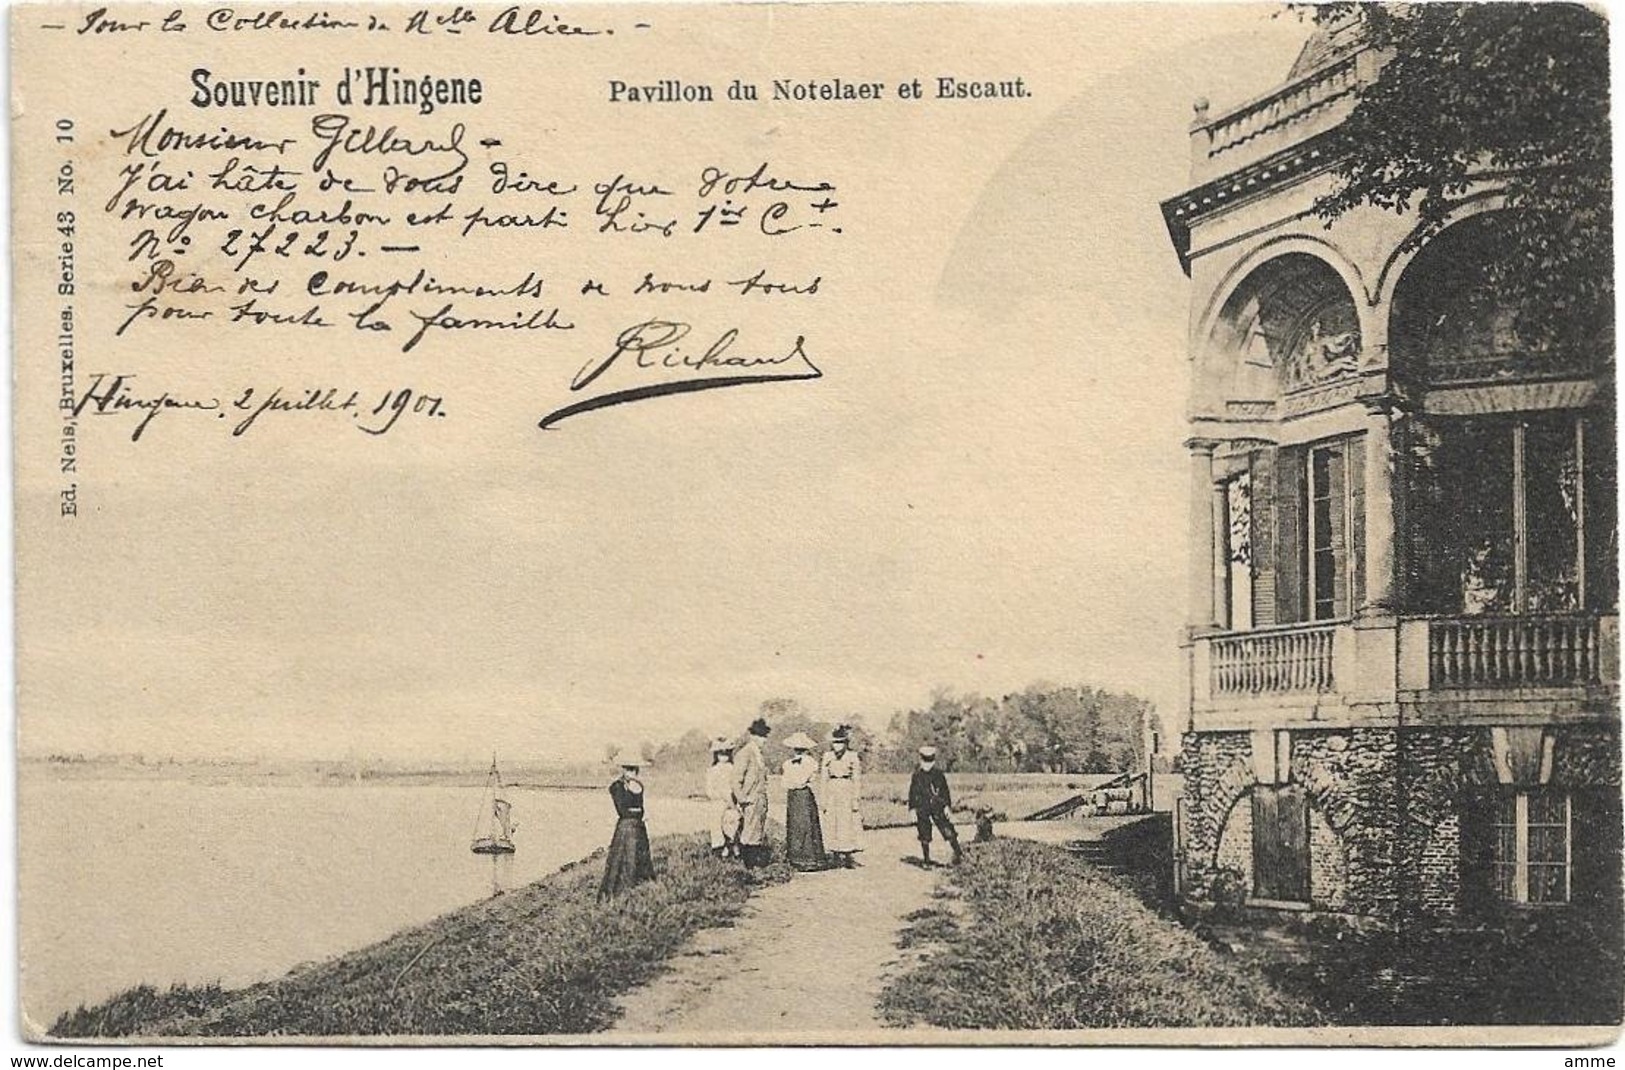 — Pour la Collection de Melle Alice. —
Souvenir d'Hingene
Pavillon du Notelaer et Escaut.
Monsieur Gillard -
J'ai hâte de vous dire que votre
wagon charbon est parti hier 1er Ct.
No 27223. —
Bien des compliments de nous tous
pour toute la famille
Richard
Hingene, 2 juillet, 1901.
Ed. Nels, Bruxelles. Serie 43 No. 10
www.delcampe.net
amme